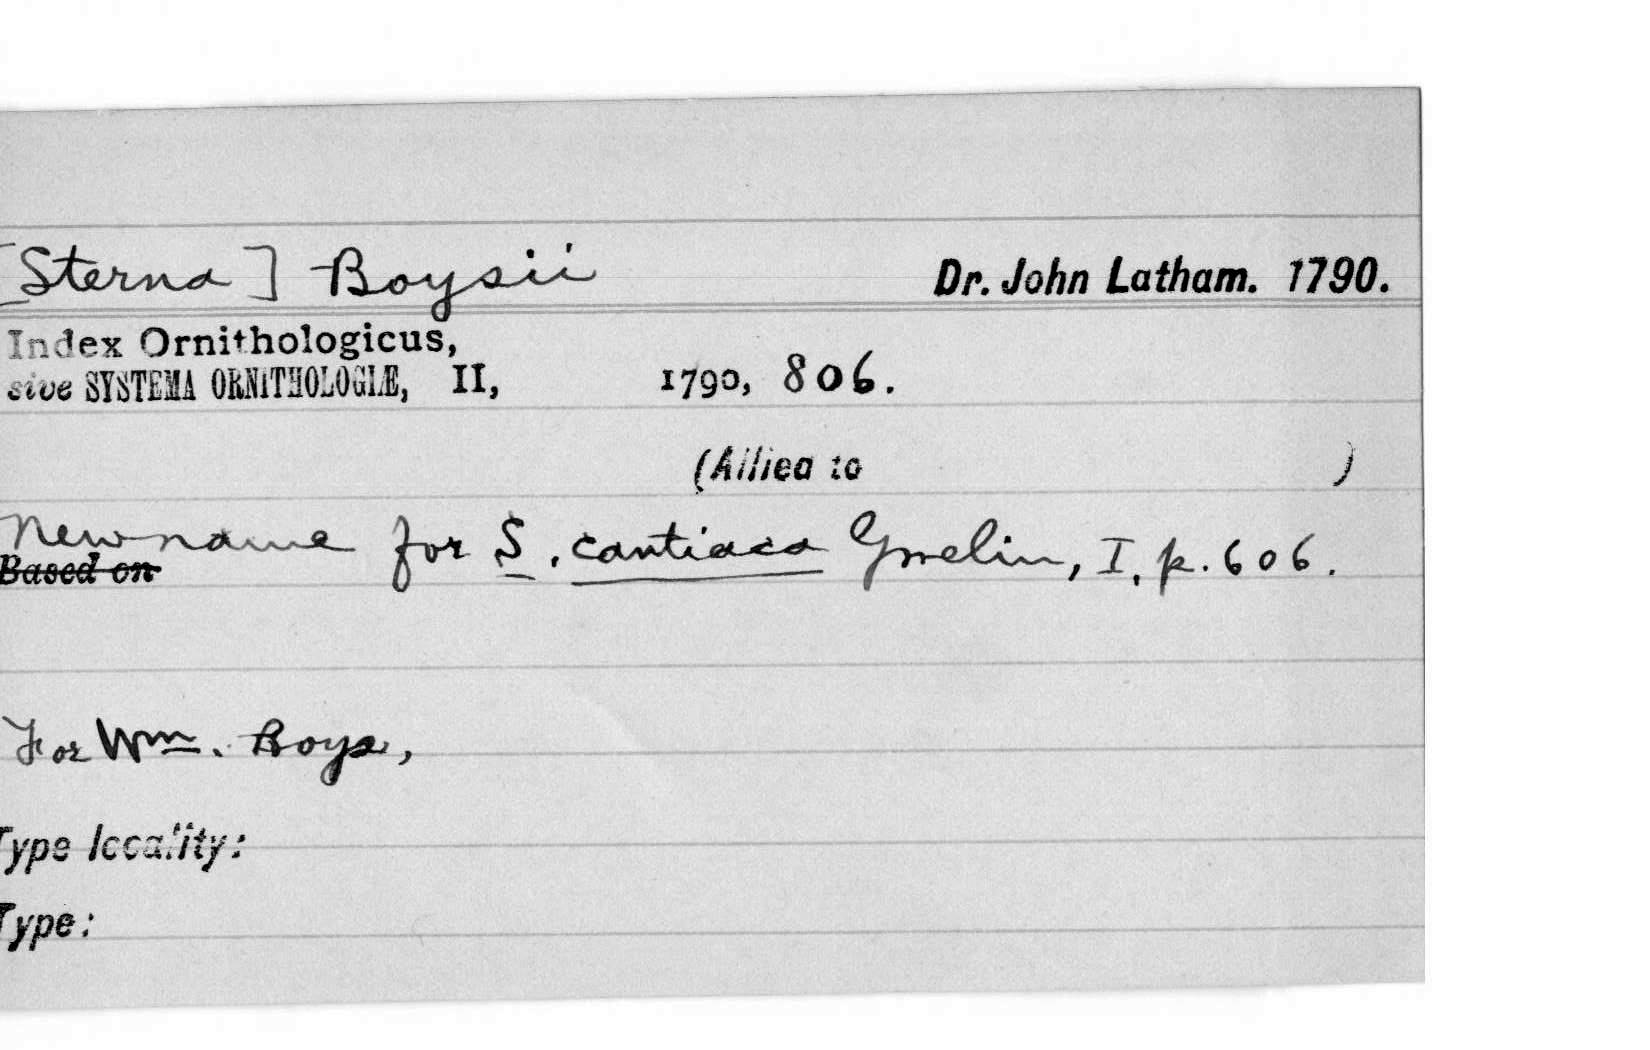 [Sterna] Boysii Dr. John Latham. 1790.
Index Ornithologicus,
sive SYSTEMA ORNITHOLOGIÆ, II, 1790, 806.
(Allied to )
New name for S. cantiaca Gmelin, I, p. 606.
Based on
For Wm. Boys,
Type locality:
Type: